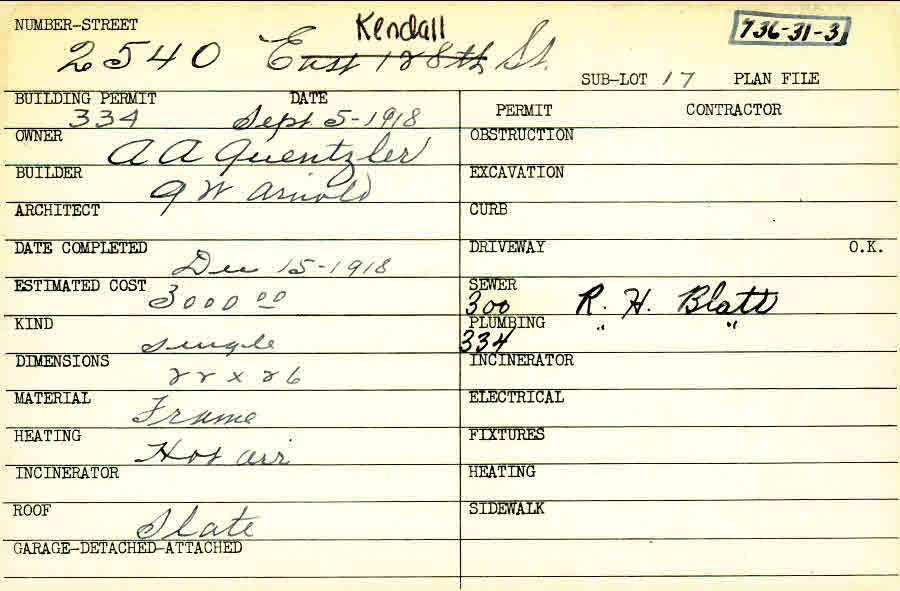 NUMBER-STREET
Kendall
736-31-31
2540 East 128th St.
SUB-LOT 17 PLAN FILE
BUILDING PERMIT DATE
334 Sept 5-1918
PERMIT CONTRACTOR
OWNER
A A Quentzler
OBSTRUCTION
BUILDER
G W Arnold
EXCAVATION
ARCHITECT
CURB
DATE COMPLETED
Dec 15-1918
DRIVEWAY O.K.
ESTIMATED COST
3000 00
SEWER
300 R. H. Blatt
KIND
Single
PLUMBING " "
334
DIMENSIONS
22 x 26
INCINERATOR
MATERIAL
Frame
ELECTRICAL
HEATING
Hot air
FIXTURES
INCINERATOR
HEATING
ROOF
Slate
SIDEWALK
GARAGE-DETACHED-ATTACHED